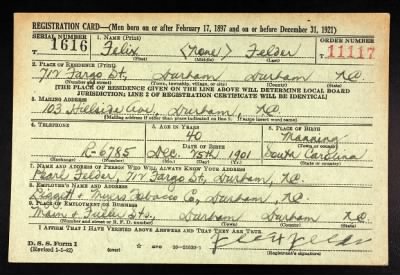 REGISTRATION CARD—(Men born on or after February 17, 1897 and on or before December 31, 1921)
SERIAL NUMBER 1. NAME (Print) ORDER NUMBER
T 1616 Felix (None) Felder T 11117
(First) (Middle) (Last)
2. PLACE OF RESIDENCE (Print)
717 Fargo St., Durham Durham N.C.
(Number and street) (Town, township, village, or city) (County) (State)
[THE PLACE OF RESIDENCE GIVEN ON THE LINE ABOVE WILL DETERMINE LOCAL BOARD
JURISDICTION; LINE 2 OF REGISTRATION CERTIFICATE WILL BE IDENTICAL]
3. MAILING ADDRESS
103 Hillside Ave., Durham, N.C.
[Mailing address if other than place indicated on line 2. If same insert word same]
4. TELEPHONE 5. AGE IN YEARS 6. PLACE OF BIRTH
40 Manning
DATE OF BIRTH (Town or county)
R-6785 Dec. 25th, 1901 South Carolina
(Exchange) (Number) (Mo.) (Day) (Yr.) (State or country)
7. NAME AND ADDRESS OF PERSON WHO WILL ALWAYS KNOW YOUR ADDRESS
Pearl Felder, 717 Fargo St., Durham, N.C.
8. EMPLOYER'S NAME AND ADDRESS
Liggett & Myers Tobacco Co., Durham, N.C.
9. PLACE OF EMPLOYMENT OR BUSINESS
Main & Fuller Sts., Durham Durham N.C.
(Number and street or R. F. D. number) (Town) (County) (State)
I AFFIRM THAT I HAVE VERIFIED ABOVE ANSWERS AND THAT THEY ARE TRUE.
D. S. S. Form 1
(Revised 1-1-42) (over)
(Registrant's signature)